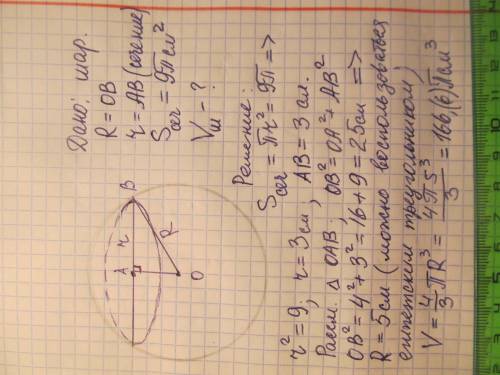 Дано: шар.
R = OB
r = AB (сечение)
Sсеч = 9π см²
Vш - ?
A
r
B
R
O
Решение:
Sсеч = πr² = 9π =>
r² = 9; r = 3 см; AB = 3 см.
Рассм. △ OAB; OB² = OA² + AB²
OB² = 4² + 3² = 16 + 9 = 25 см =>
R = 5 см (можно воспользоваться
египетским треугольником)
V = 4/3 πR³ = 4π5³/3 = 166,(6)π см³